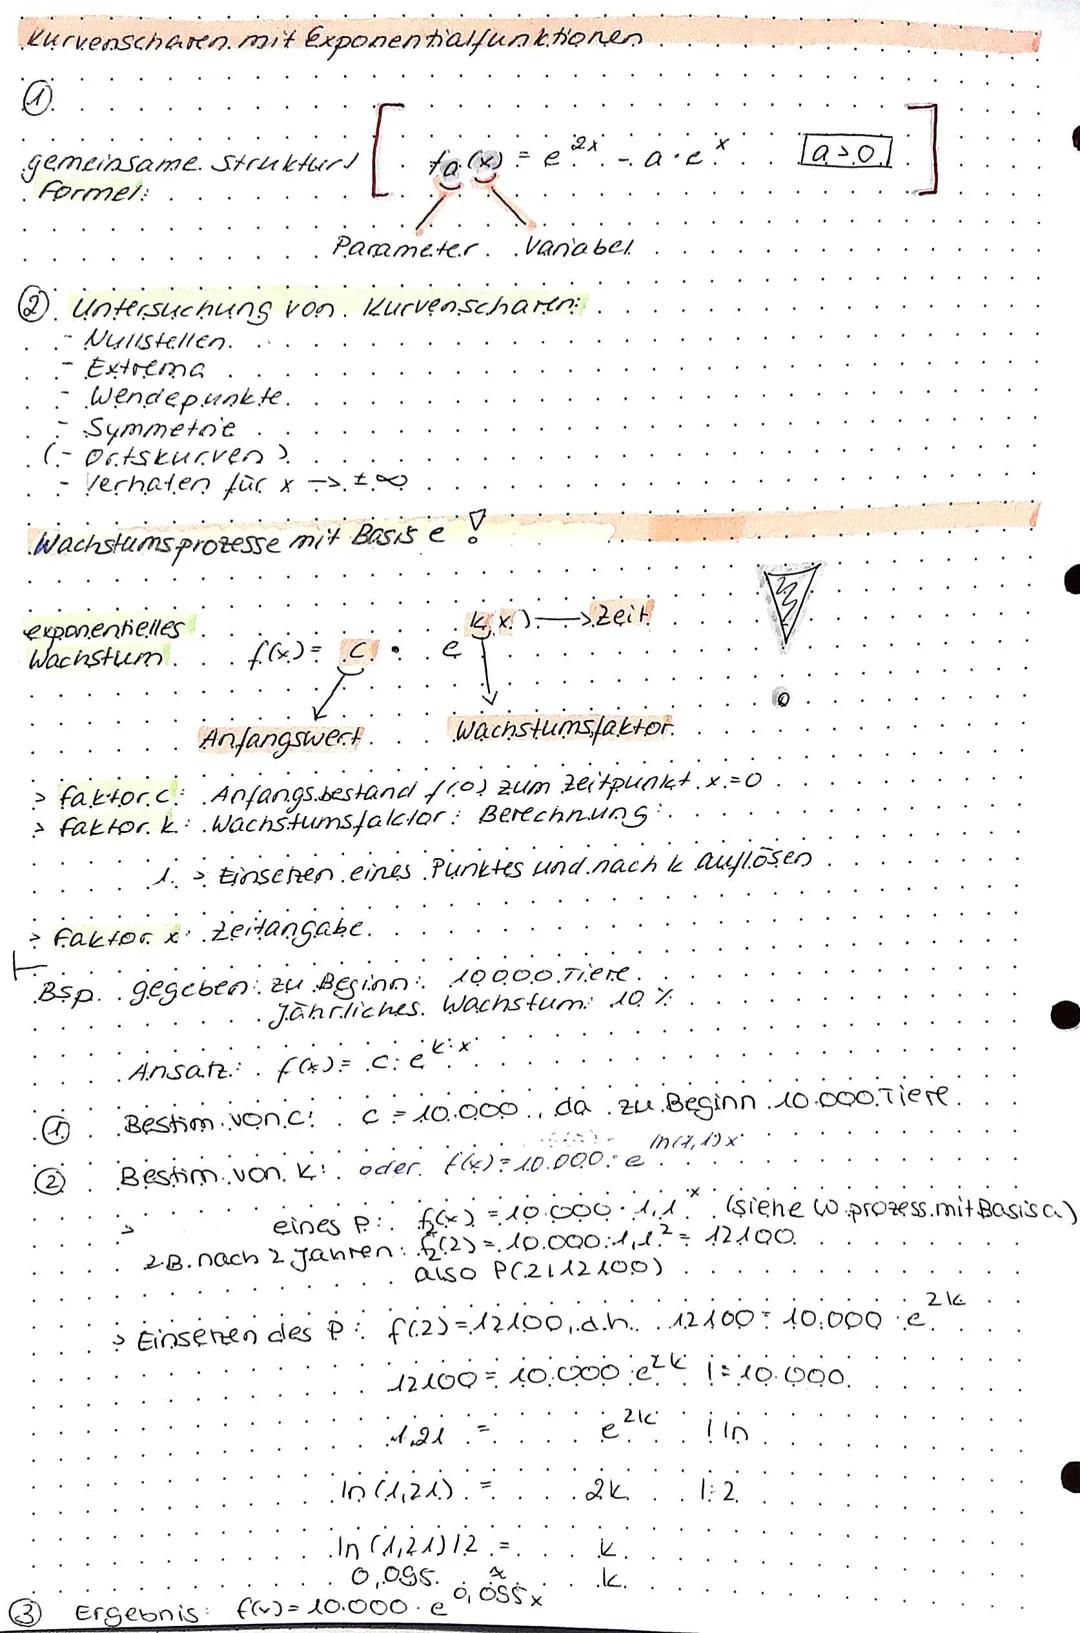 Kurvenscharen mit Exponentialfunktionen
①
gemeinsame Struktur/ fa(x) = e^2x - a·e^x a>0
Formel:
Parameter Variabel
② Untersuchung von Kurvenscharen:
- Nullstellen
- Extrema
- Wendepunkte
- Symmetrie
(- Ortskurven)
- Verhaten für x → ±∞
Wachstumsprozesse mit Basis e !
exponentielles
Wachstum f(x) = c · e^k(x) → Zeit
Anfangswert Wachstumsfaktor
> faktor c: Anfangsbestand f(0) zum Zeitpunkt x=0
> faktor k: Wachstumsfaktor: Berechnung:
1. > Einsetzen eines Punktes und nach k auflösen
> faktor x: Zeitangabe
Bsp. gegeben: zu Beginn: 10000 Tiere
Jährliches Wachstum: 10 %
Ansatz: f(x) = c·e^k·x
① Bestim. von c: c = 10.000, da zu Beginn 10.000 Tiere
② Bestim. von k: oder f(x) = 10.000·e^ln(1,1)x
> eines P: f2(x) = 10.000·1,1^x (siehe W.prozess mit Basis a)
z.B. nach 2 Jahren: f2(2) = 10.000·1,1^2 = 12100
also P(2|12100)
> Einsetzen des P: f(2) = 12100, d.h. 12100 = 10.000·e^2k
12100 = 10.000·e^2k |:10.000
1,21 = e^2k | ln
ln(1,21) = 2k |:2
ln(1,21)/2 = k
0,095 ≈ k
③ Ergebnis: f(x) = 10.000·e^0,095x